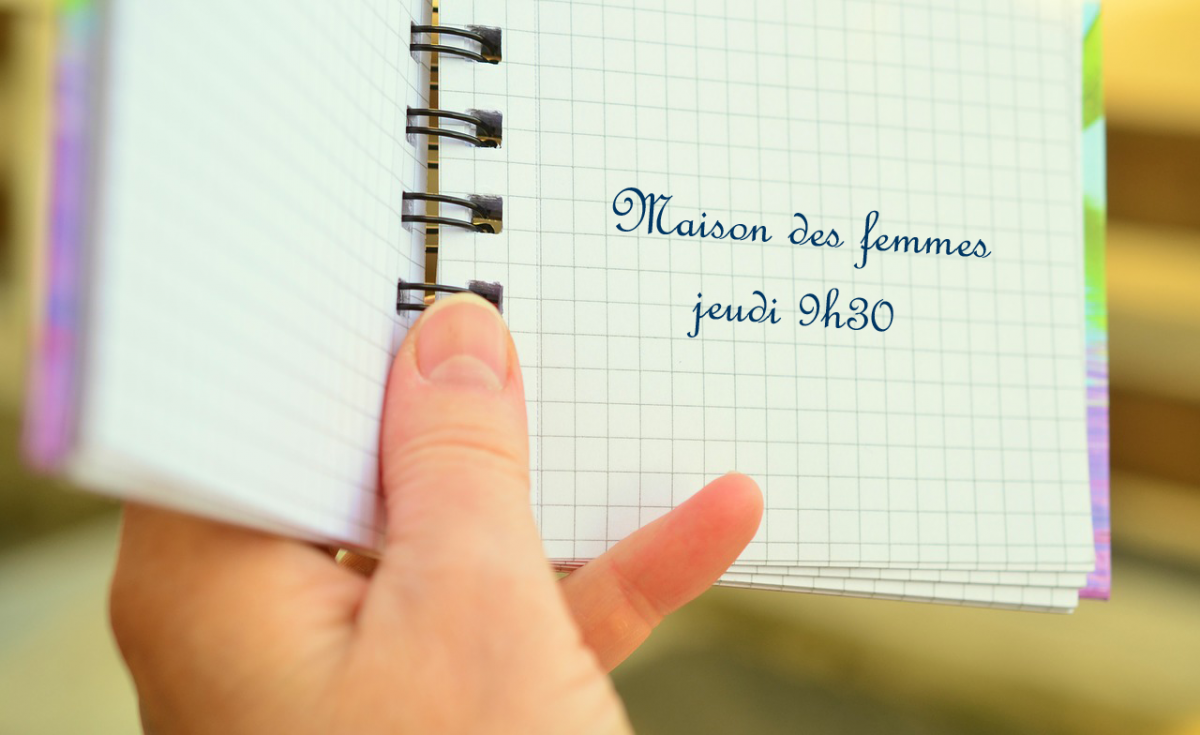 Maison des femmes
jeudi 9h30